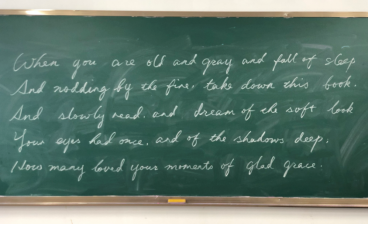 When you are old and gray and full of sleep
And nodding by the fire, take down this book.
And slowly read, and dream of the soft look
Your eyes had once, and of the shadows deep,
How many loved your moments of glad grace.